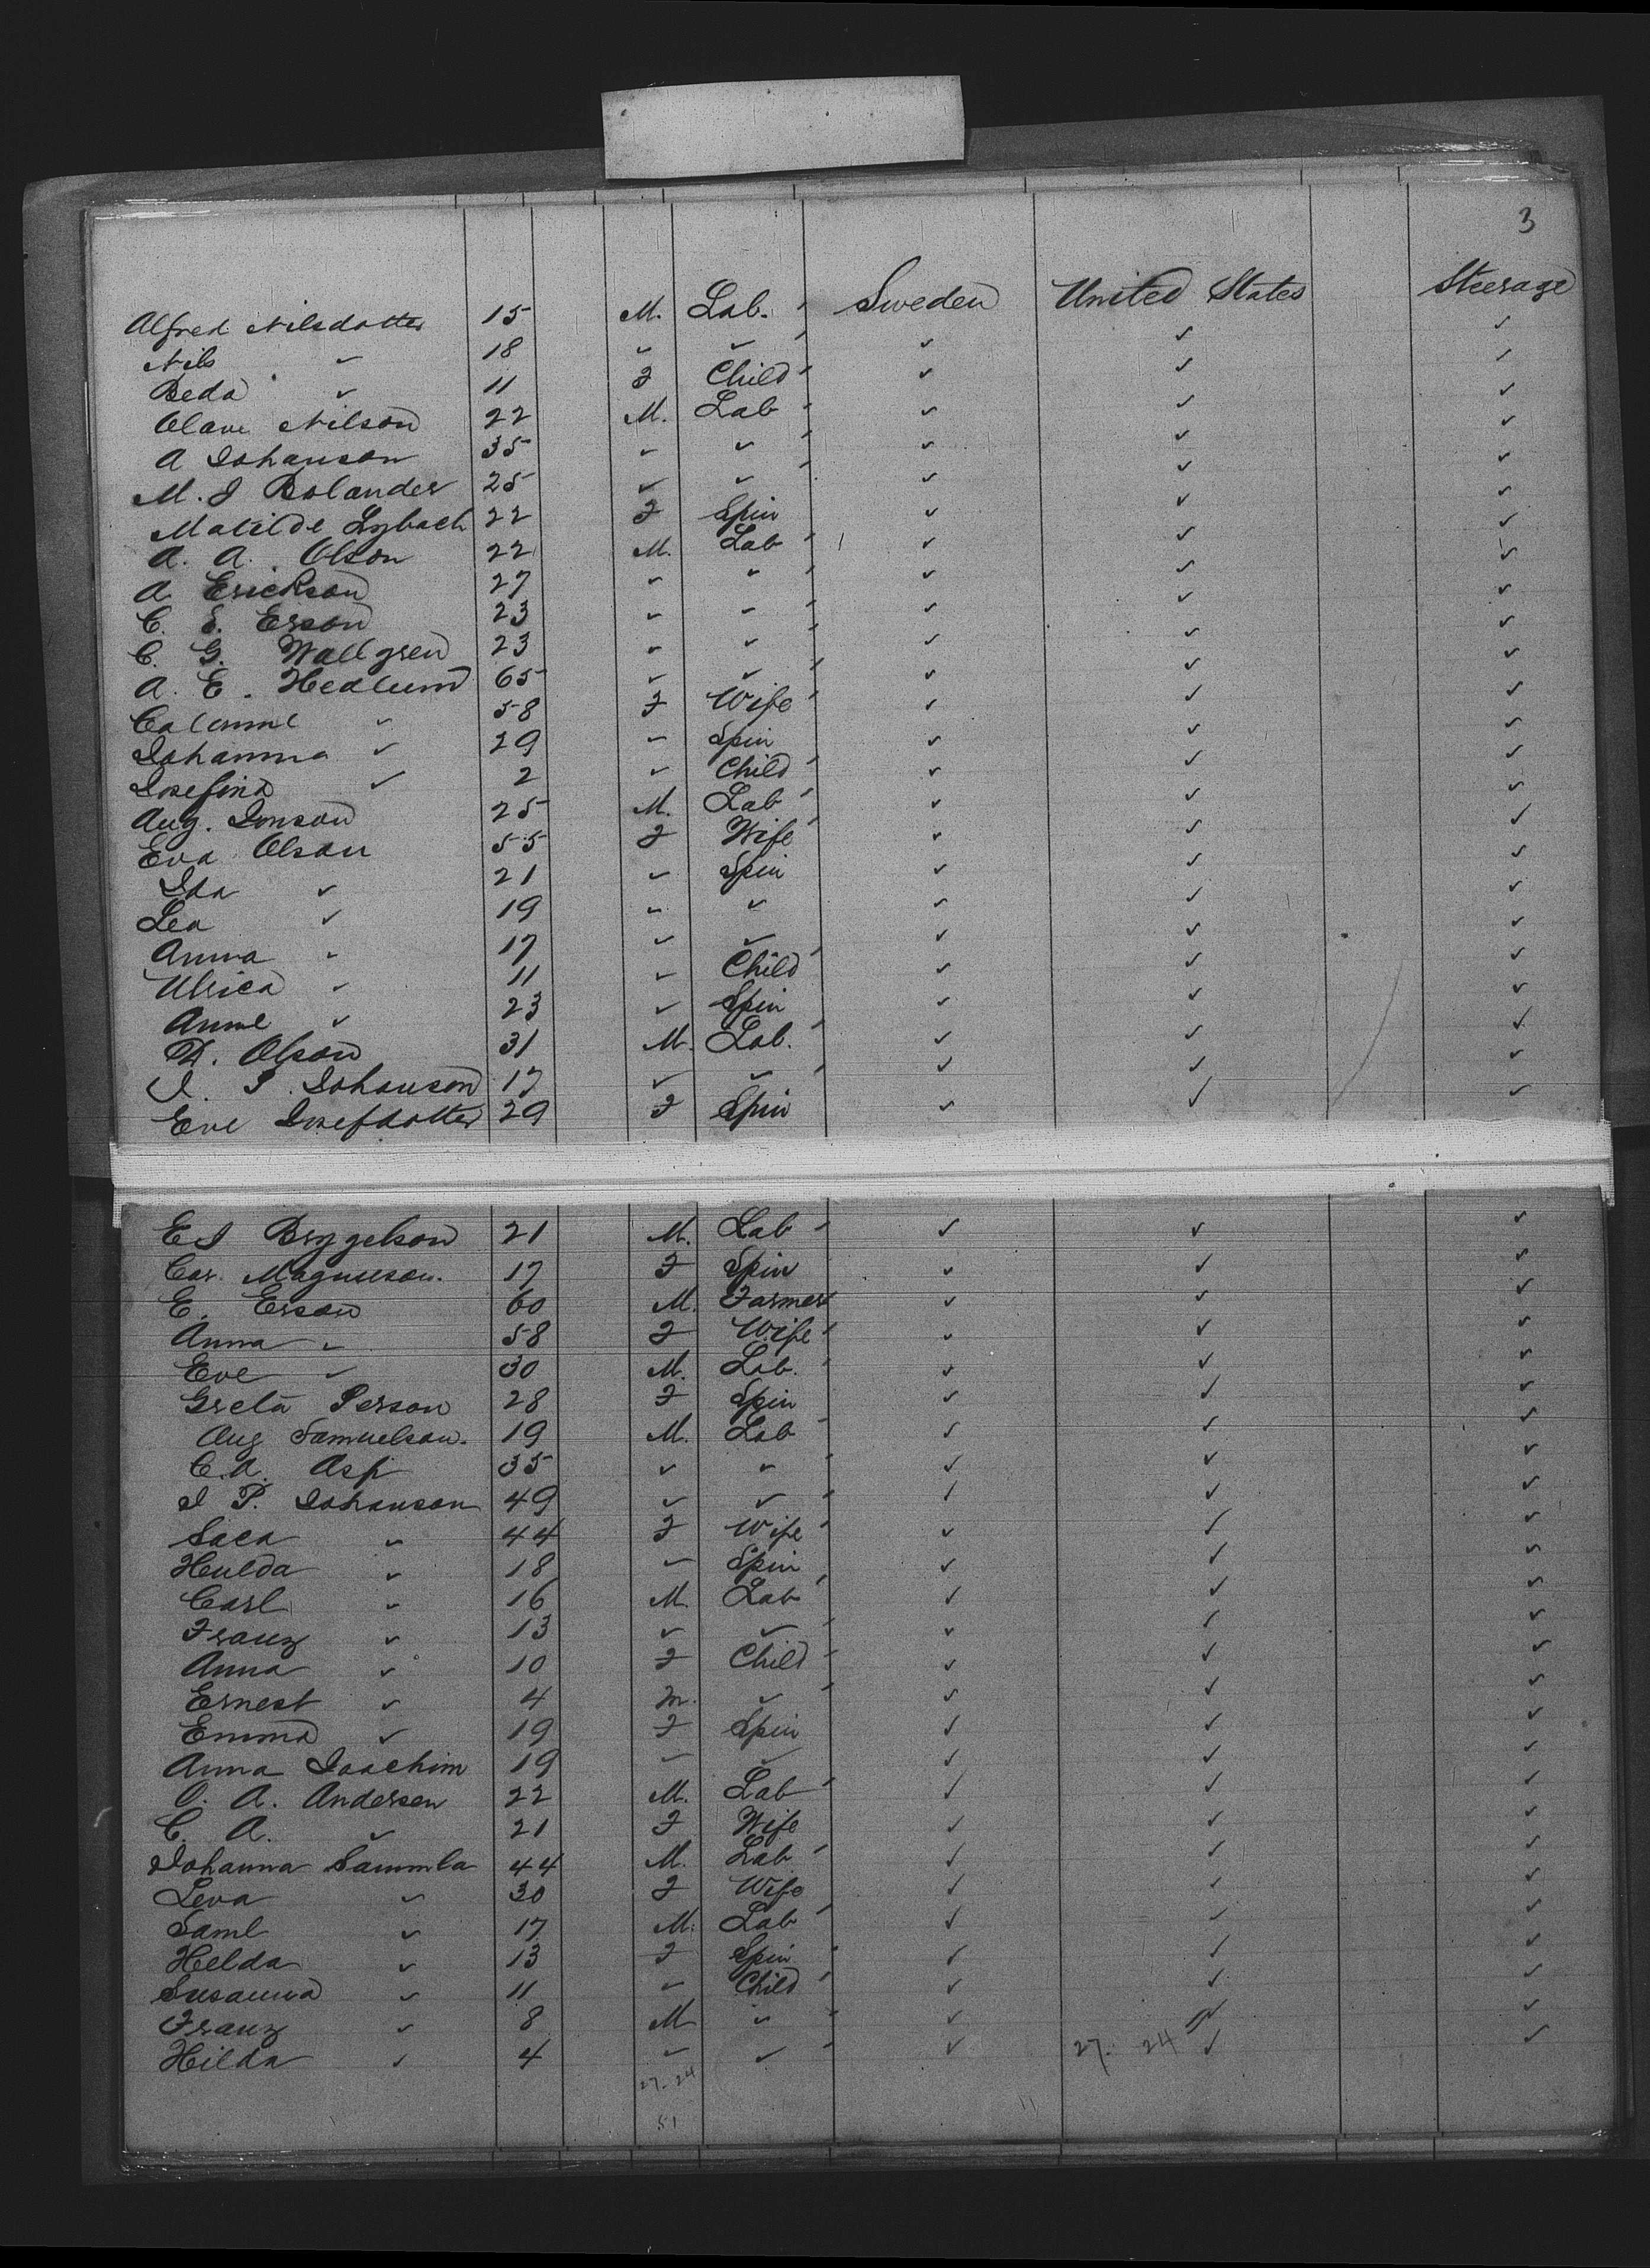 3
Alfred Nilsdotter 15 M. Lab. Sweden United States Steerage
Nils " 18 " " " " "
Beda " 11 F Child " " "
Olave Nilson 22 M. Lab " " "
A Johanson 35 " " " " "
M. J Bolander 25 " " " " "
Matilde Lybach 22 F Spin " " "
A. A. Olson 22 M. Lab " " "
A Erickson 27 " " " " "
C. E. Erson 23 " " " " "
C. G. Wallgren 23 " " " " "
A. E. Hedlund 65 " " " " "
" 58 F Wife " " "
Johanna " 29 " Spin " " "
Josefina " 2 " Child " " "
Aug. Jonson 25 M. Lab " " "
Eva Olson 55 F Wife " " "
Ida " 21 " Spin " " "
Lea " 19 " " " " "
Anna " 17 " " " " "
Ulrica " 11 " Child " " "
Anne " 23 " Spin " " "
D. Olson 31 M. Lab. " " "
J. P. Johanson 17 " " " " "
Eve Josefdotter 29 F Spin " " "
E J Bryngelson 21 M. Lab " " "
Car. Magnuson. 17 F Spin " " "
E. Erson 60 M. Farmer " " "
Anna " 58 F Wife " " "
Eve " 30 M. Lab. " " "
Greta Person 28 F Spin " " "
Aug Samuelson. 19 M. Lab " " "
C. A. Asp 35 " " " " "
J P. Johanson 49 " " " " "
Saca " 44 F Wife " " "
Hulda " 18 " Spin " " "
Carl " 16 M. Lab " " "
Franz " 13 " " " " "
Anna " 10 F Child " " "
Ernest " 4 M. " " " "
Emma " 19 F Spin " " "
Anna Joachim 19 " " " " "
O. A. Andersen 22 M. Lab " " "
C. A. " 21 F Wife " " "
Johanna Sammla 44 M. Lab " " "
Lena " 30 F Wife " " "
Saml " 17 M. Lab " " "
Helda " 13 F Spin " " "
Susanna " 11 " Child " " "
Franz " 8 M " " " "
Hilda " 4 " " " 27. 24 " "
27-24
51